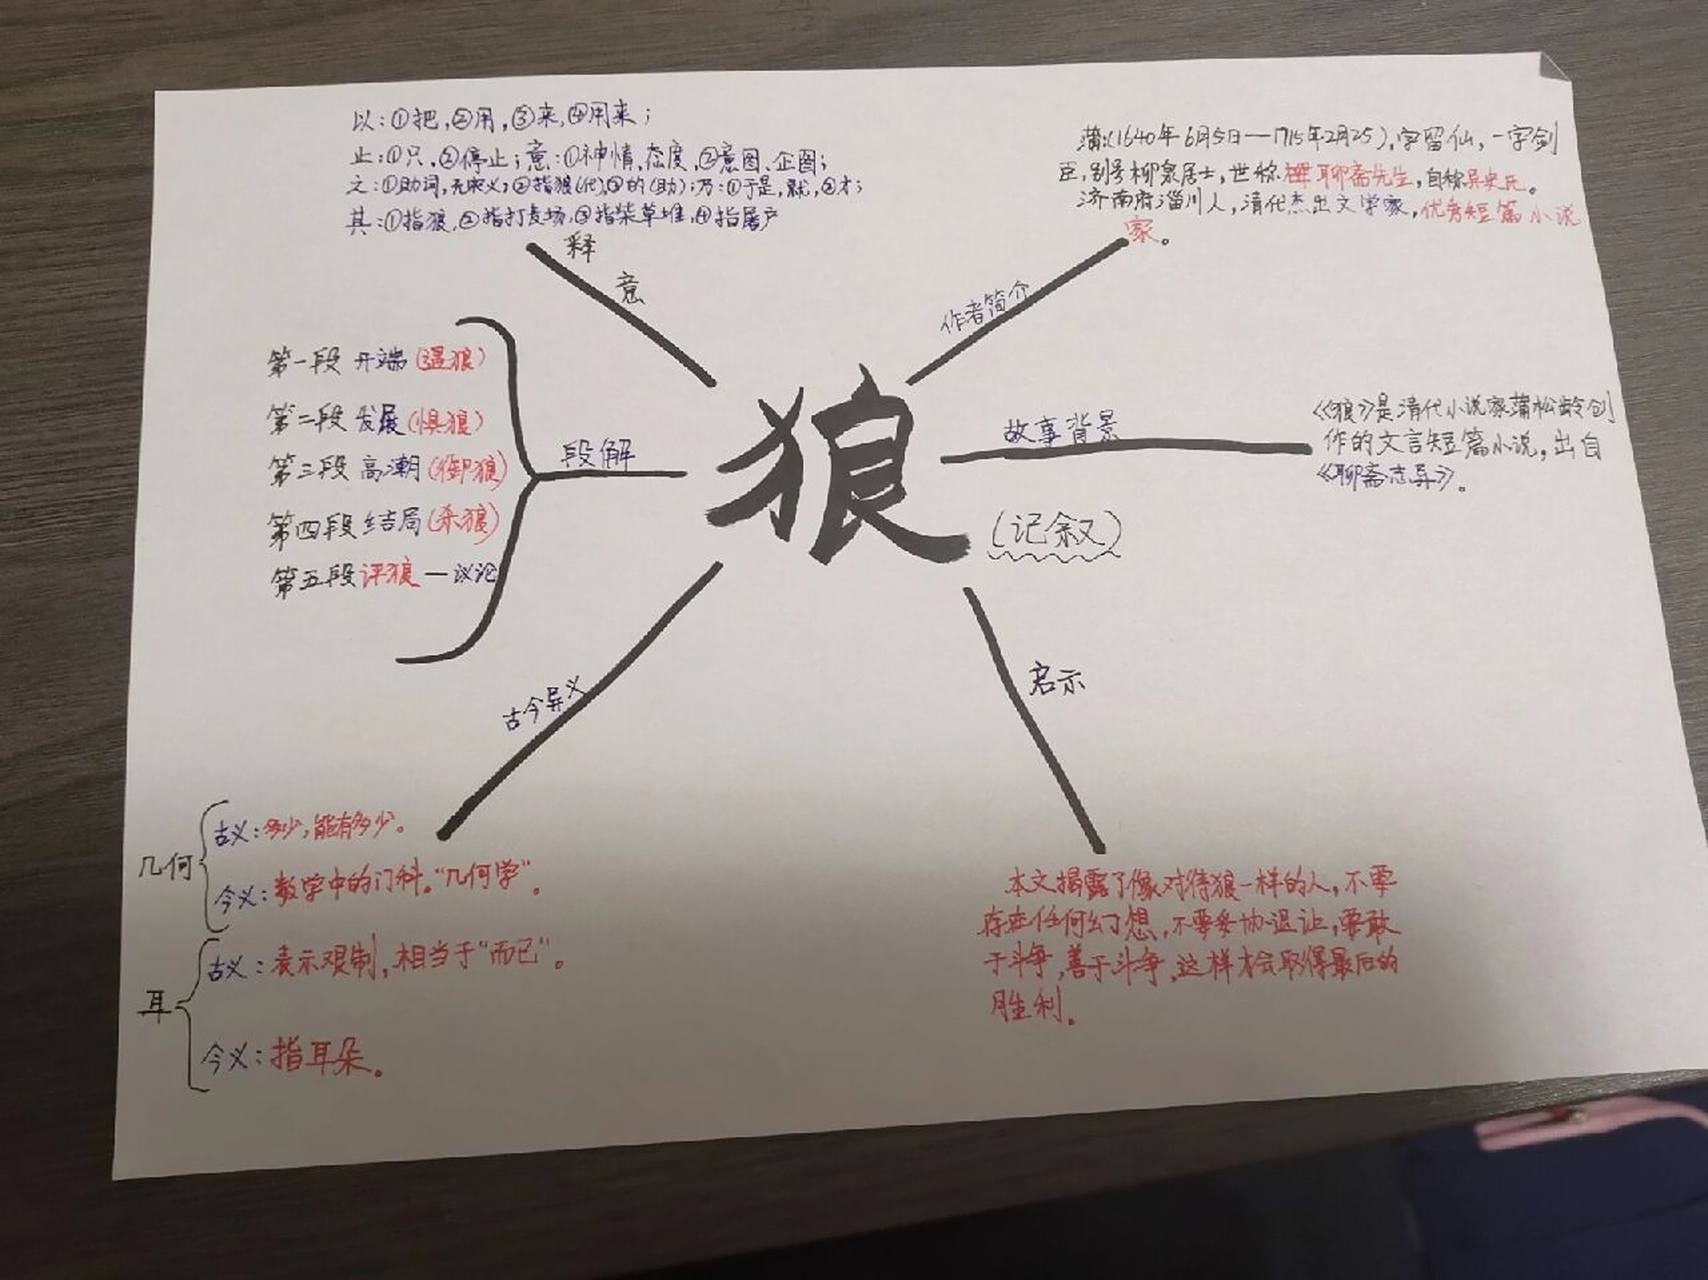 以:①把,②用,③来,④用来;
止:①只,②停止;意:①神情、态度,②意图、企图;
之:①助词,无实义,②指狼(代)③的(助);乃:①于是,就,②才;
其:①指狼,②指打麦场,③指柴草堆,④指屠户
释意
蒲(1640年6月5日—1715年2月25),字留仙,一字剑
臣,别号柳泉居士,世称聊斋先生,自称异史氏。
济南府淄川人,清代杰出文学家,优秀短篇小说
家。
作者简介
第一段 开端(遇狼)
第二段 发展(惧狼)
第三段 高潮(御狼)
第四段 结局(杀狼)
第五段评狼—议论
段解
狼
(记叙)
故事背景
《狼》是清代小说家蒲松龄创
作的文言短篇小说,出自
《聊斋志异》。
古今异义
几何
古义:多少,能有多少。
今义:数学中的门科。“几何学”。
耳
古义:表示限制,相当于“而已”。
今义:指耳朵。
启示
本文揭露了像对待狼一样的人,不要
存在任何幻想,不要妥协退让,要敢
于斗争,善于斗争,这样才会取得最后的
胜利。